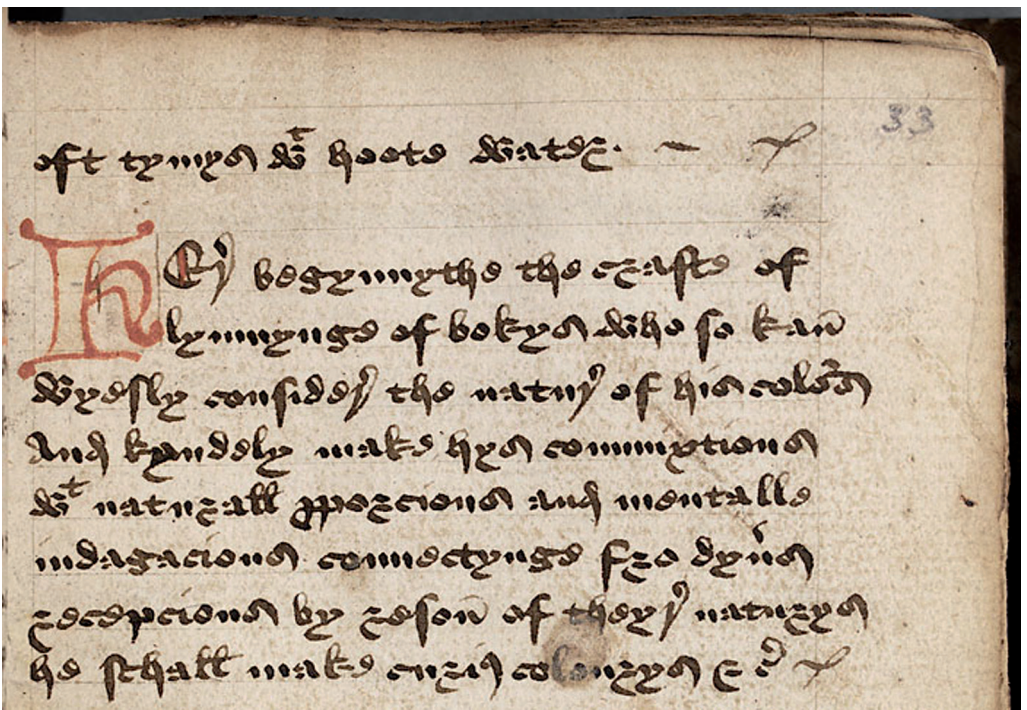 33
oft tymys wᵗ hoote water.
HEr begynnythe the crafte of
lymnynge of bokys who so kan
wyesly consider the natur of his colors
And kyndely make hys commixtions
wᵗ naturall pporcions and mentalle
indagacions connectynge fro dyũs
recepcions by reson of theyr naturys
he schall make curius colourys &c̃